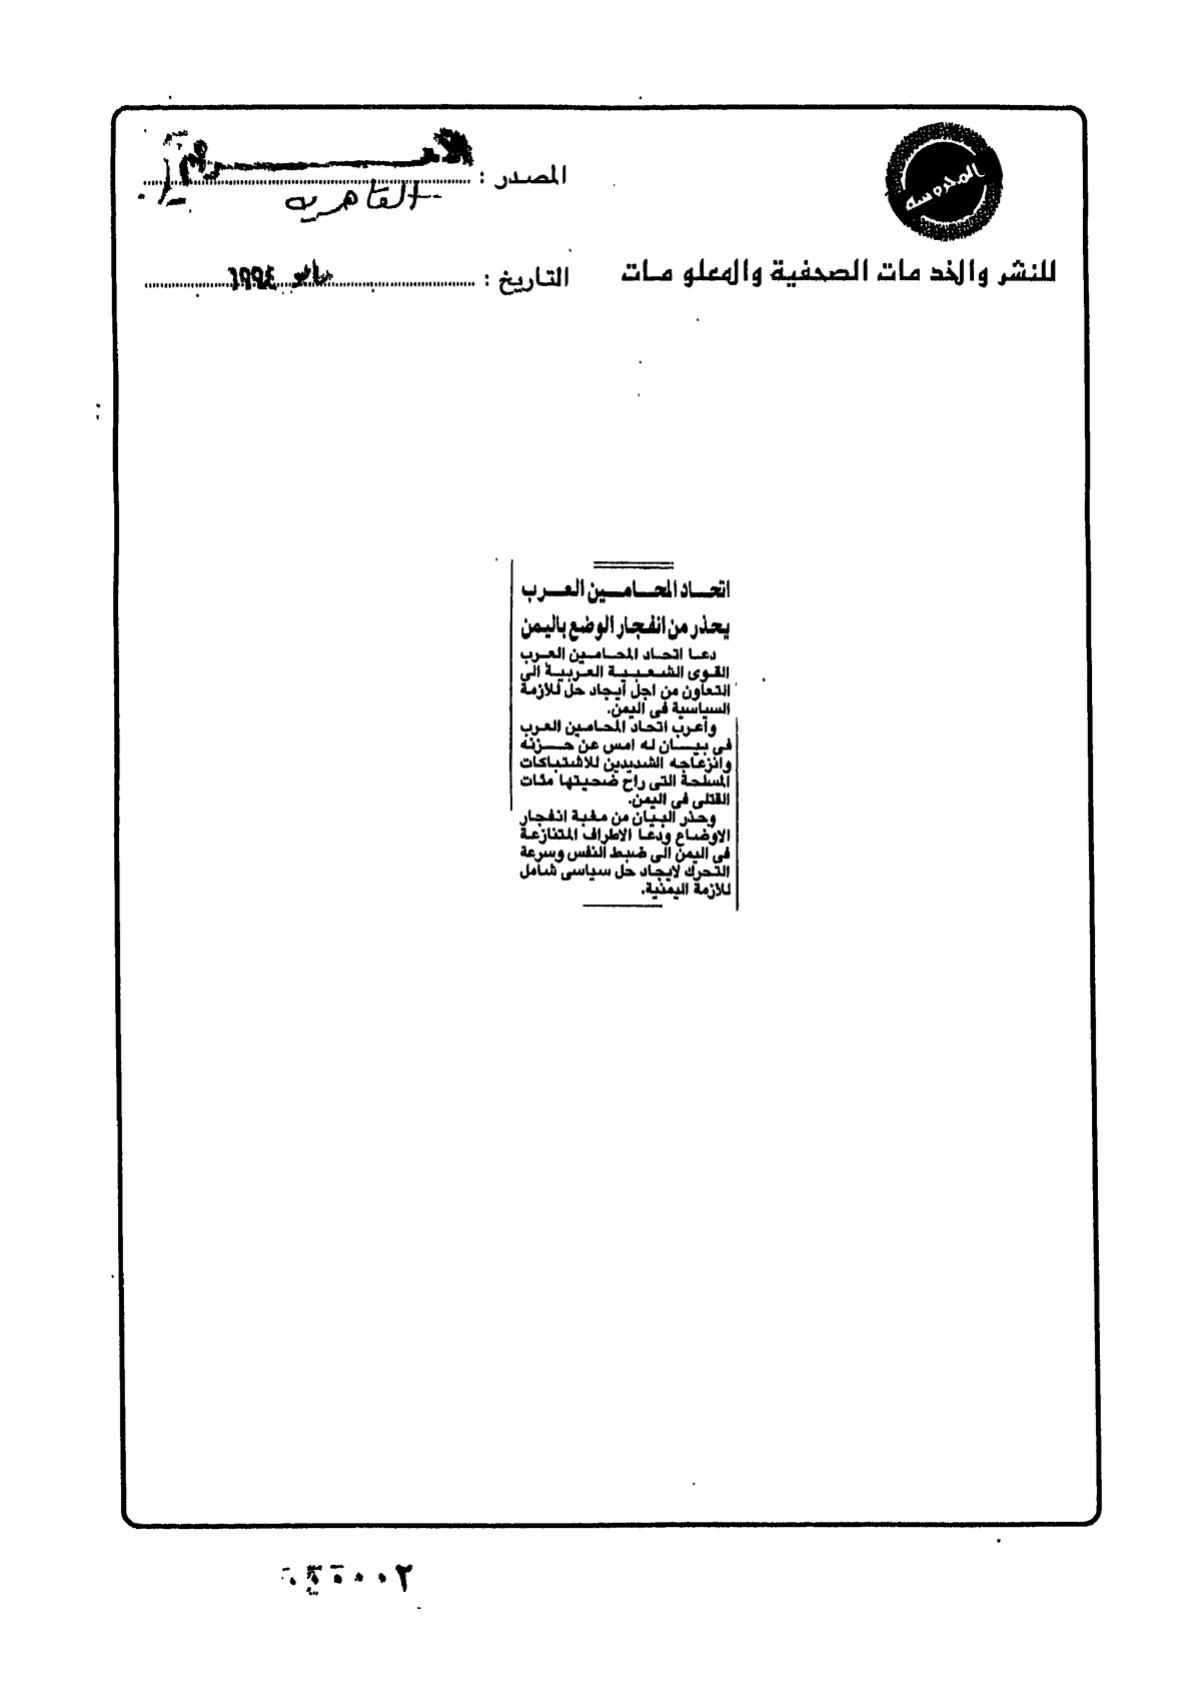 المحروسة
المصدر :
القاهرية
للنشر والخد مات الصحفية والمعلو مات
التاريخ : مايو ١٩٩٤
اتحاد المحامين العرب
يحذر من انفجار الوضع باليمن
دعا اتحاد المحامين العرب
القوى الشعبية العربية الى
التعاون من اجل ايجاد حل للازمة
السياسية فى اليمن.
واعرب اتحاد المحامين العرب
فى بيان له امس عن حزنه
وانزعاجه الشديدين للاشتباكات
المسلحة التى راح ضحيتها مئات
القتلى فى اليمن.
وحذر البيان من مغبة انفجار
الاوضاع ودعا الاطراف المتنازعة
فى اليمن الى ضبط النفس وسرعة
التحرك لايجاد حل سياسى شامل
للازمة اليمنية.